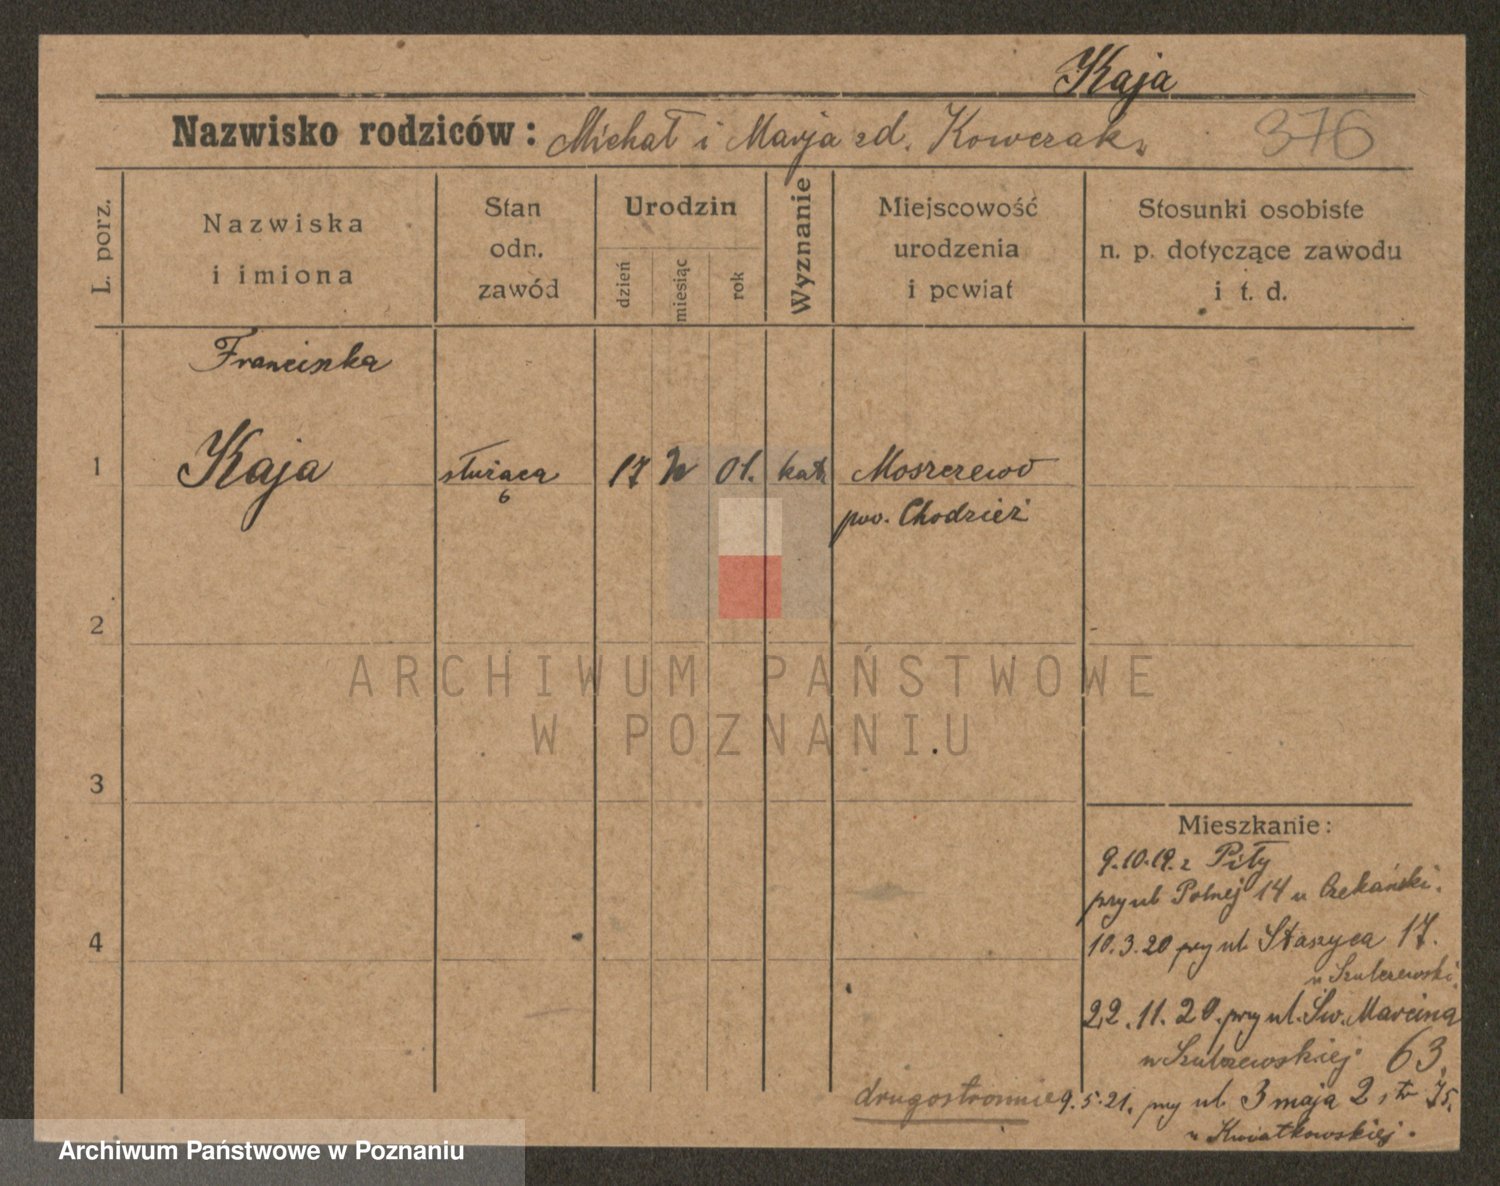 Kaja
Nazwisko rodziców: Michał i Marja zd. Kowczak
376
L. porz.
Nazwiska
i imiona
Stan
odn.
zawód
Urodzin
dzień
miesiąc
rok
Wyznanie
Miejscowość
urodzenia
i powiat
Stosunki osobiste
n. p. dotyczące zawodu
i t. d.
Franciszka
1 Kaja służąca 17 01. kat. Moszczewo
6
pow. Chodzież
2
ARCHIWUM PAŃSTWOWE
W POZNANIU
3
Mieszkanie:
9.10.19. z Piły
przy ul. Polnej 14 u Czekański.
4
10.3.20 przy ul. Staszyca 17.
u Szulczewski.
22.11.20. przy ul. Św. Marcina
u Szulczewskiej. 63.
drugostronnie 9.5.21. przy ul. 3 maja 2 str
u Kwiatkowskiej.
Archiwum Państwowe w Poznaniu